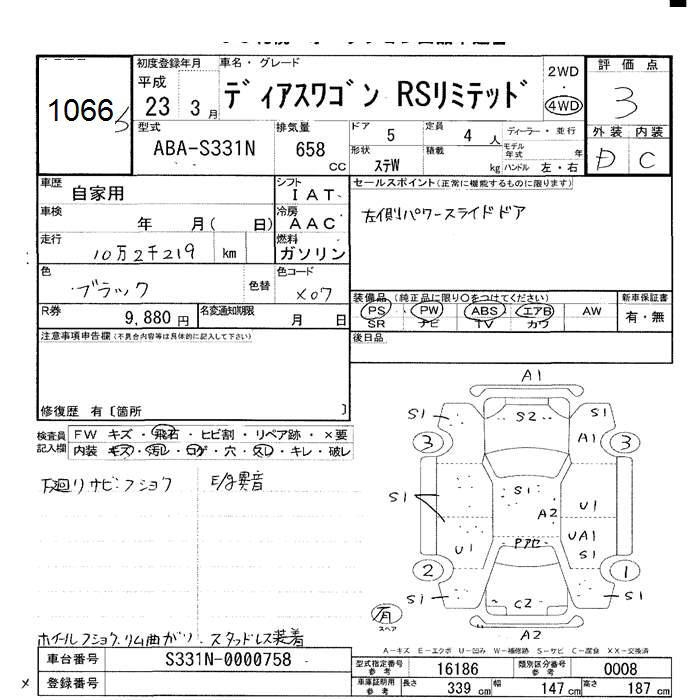 1066
初度登録年月
平成
23 3月
車名・グレード
ディアスワゴン RSリミテッド
2WD
・
4WD
評価点
3
外装 内装
D C
型式
ABA-S331N
排気量
658
CC
ドア 5
定員 4 人
ディーラー・並行
形状 ステW
積載 kg
モデル年式 年
ハンドル 左・右
車歴
自家用
シフト
IAT
車検
年 月( 日)
冷房
AAC
走行
10万2千219 km
燃料
ガソリン
色
ブラック
色替
色コード
X07
R券
9,880 円
名変通知期限
月 日
セールスポイント(正常に機能するものに限ります)
左側パワースライドドア
装備品 (純正品に限り○をつけてください)
PS PW ABS エアB AW
SR ナビ TV カワ
新車保証書
有・無
後日品
注意事項申告欄(不具合内容等は具体的に記入して下さい)
修復歴 有〔箇所 〕
検査員記入欄
FW キズ・飛石・ヒビ割・リペア跡・×要
内装 キズ・汚レ・コゲ・穴・スレ・キレ・破レ
下廻りサビ・フショク
E/g異音
ホイールフショク、リム曲ガリ、スタッドレス装着
A1
S1 S2 S1
3 A1 3
S1 S1 A2 U1
U1 Pアセ UA1
S1
2 1
S1 C2 S1
有
スペア
A2
A-キズ E-エクボ U-凹み W-補修跡 S-サビ C-腐食 XX-交換済
車台番号 S331N-0000758
登録番号
×
型式指定番号参考 16186
類別区分番号参考 0008
車庫証明用参考 長さ 339 cm 幅 147 cm 高さ 187 cm